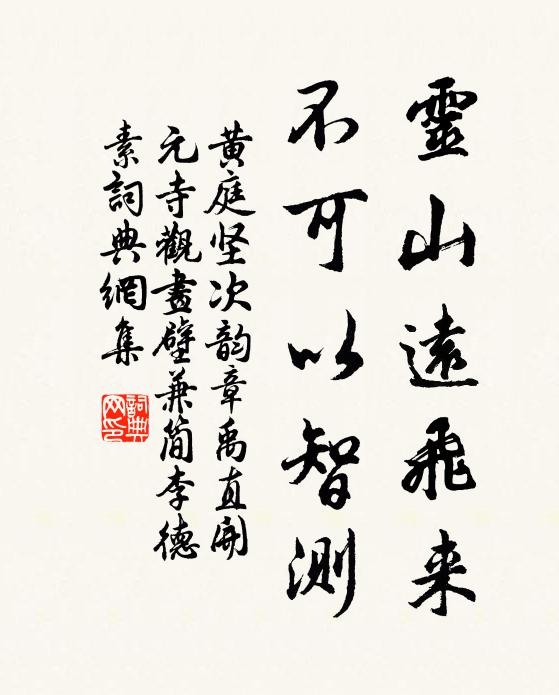 靈山遠飛来
不可以智測
黄庭坚次韵章禹直開
元寺觀畫壁兼简李德
素詞典網集
詞典网印